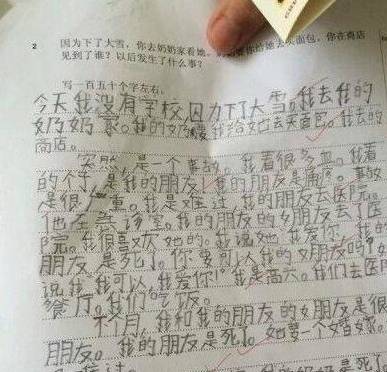 2 因为下了大雪，你去奶奶家看她。奶奶要你给她去买面包，你在商店
见到了谁？以后发生了什么事？
写一百五十个字左右。
今天我没有学校，因为下了大雪。我去我的
奶奶家。我的奶奶要我给她去买面包。我去的
商店。
突然，是一个事故。我看很多血。我看
的个子是我的朋友！我的朋友是 事故
是很严重。我是难过我的朋友去医院。
他在 室。我的朋友的女朋友去了医
院。我很喜欢她的。我说她“我爱你，我的
朋友是死了。你要可以我的女朋友吗？”
说“我可以，我爱你！”我是高兴。我们去医院
餐厅。我们吃饭。
个月，我和我的朋友的女朋友是很
朋友。我的朋友是死了。她要一个婚